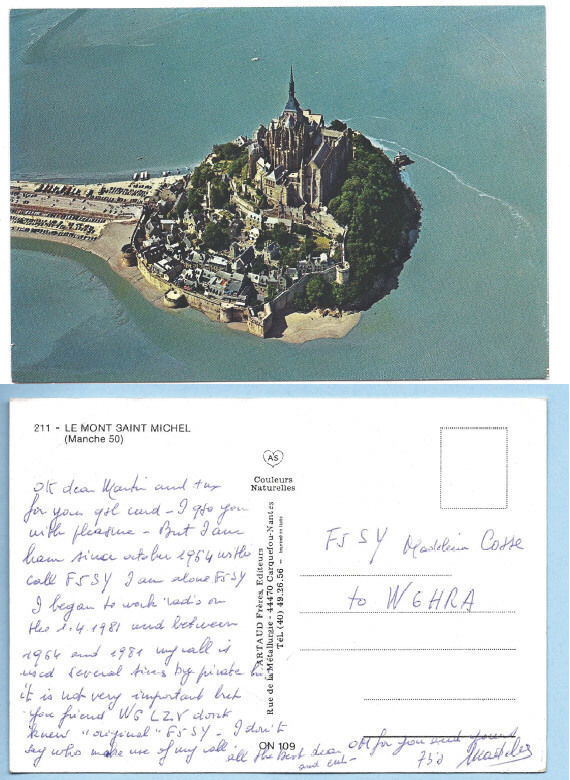 211 - LE MONT SAINT MICHEL
(Manche 50)
AS
Couleurs
Naturelles
OK dear Martin and tnx
for your qsl card - I qso you
with pleasure - But I am
ham since october 1964 with
call F5SY I am alone F5SY
I began to work radio on
the 1.4.1981 and between
1964 and 1981 my call is
used several times by private
it is not very important but
your friend W6LZV dont
knew "original" F5SY - I don't
say who make use of my call
all the best dear OM for you and yours
and cul -
73's Madeleine
ARTAUD Frères, Editeurs
Rue de la Métallurgie - 44470 Carquefou-Nantes
Tél. (40) 49.26.56 -
ON 109
F5SY Madeleine Cosse
to W6HRA